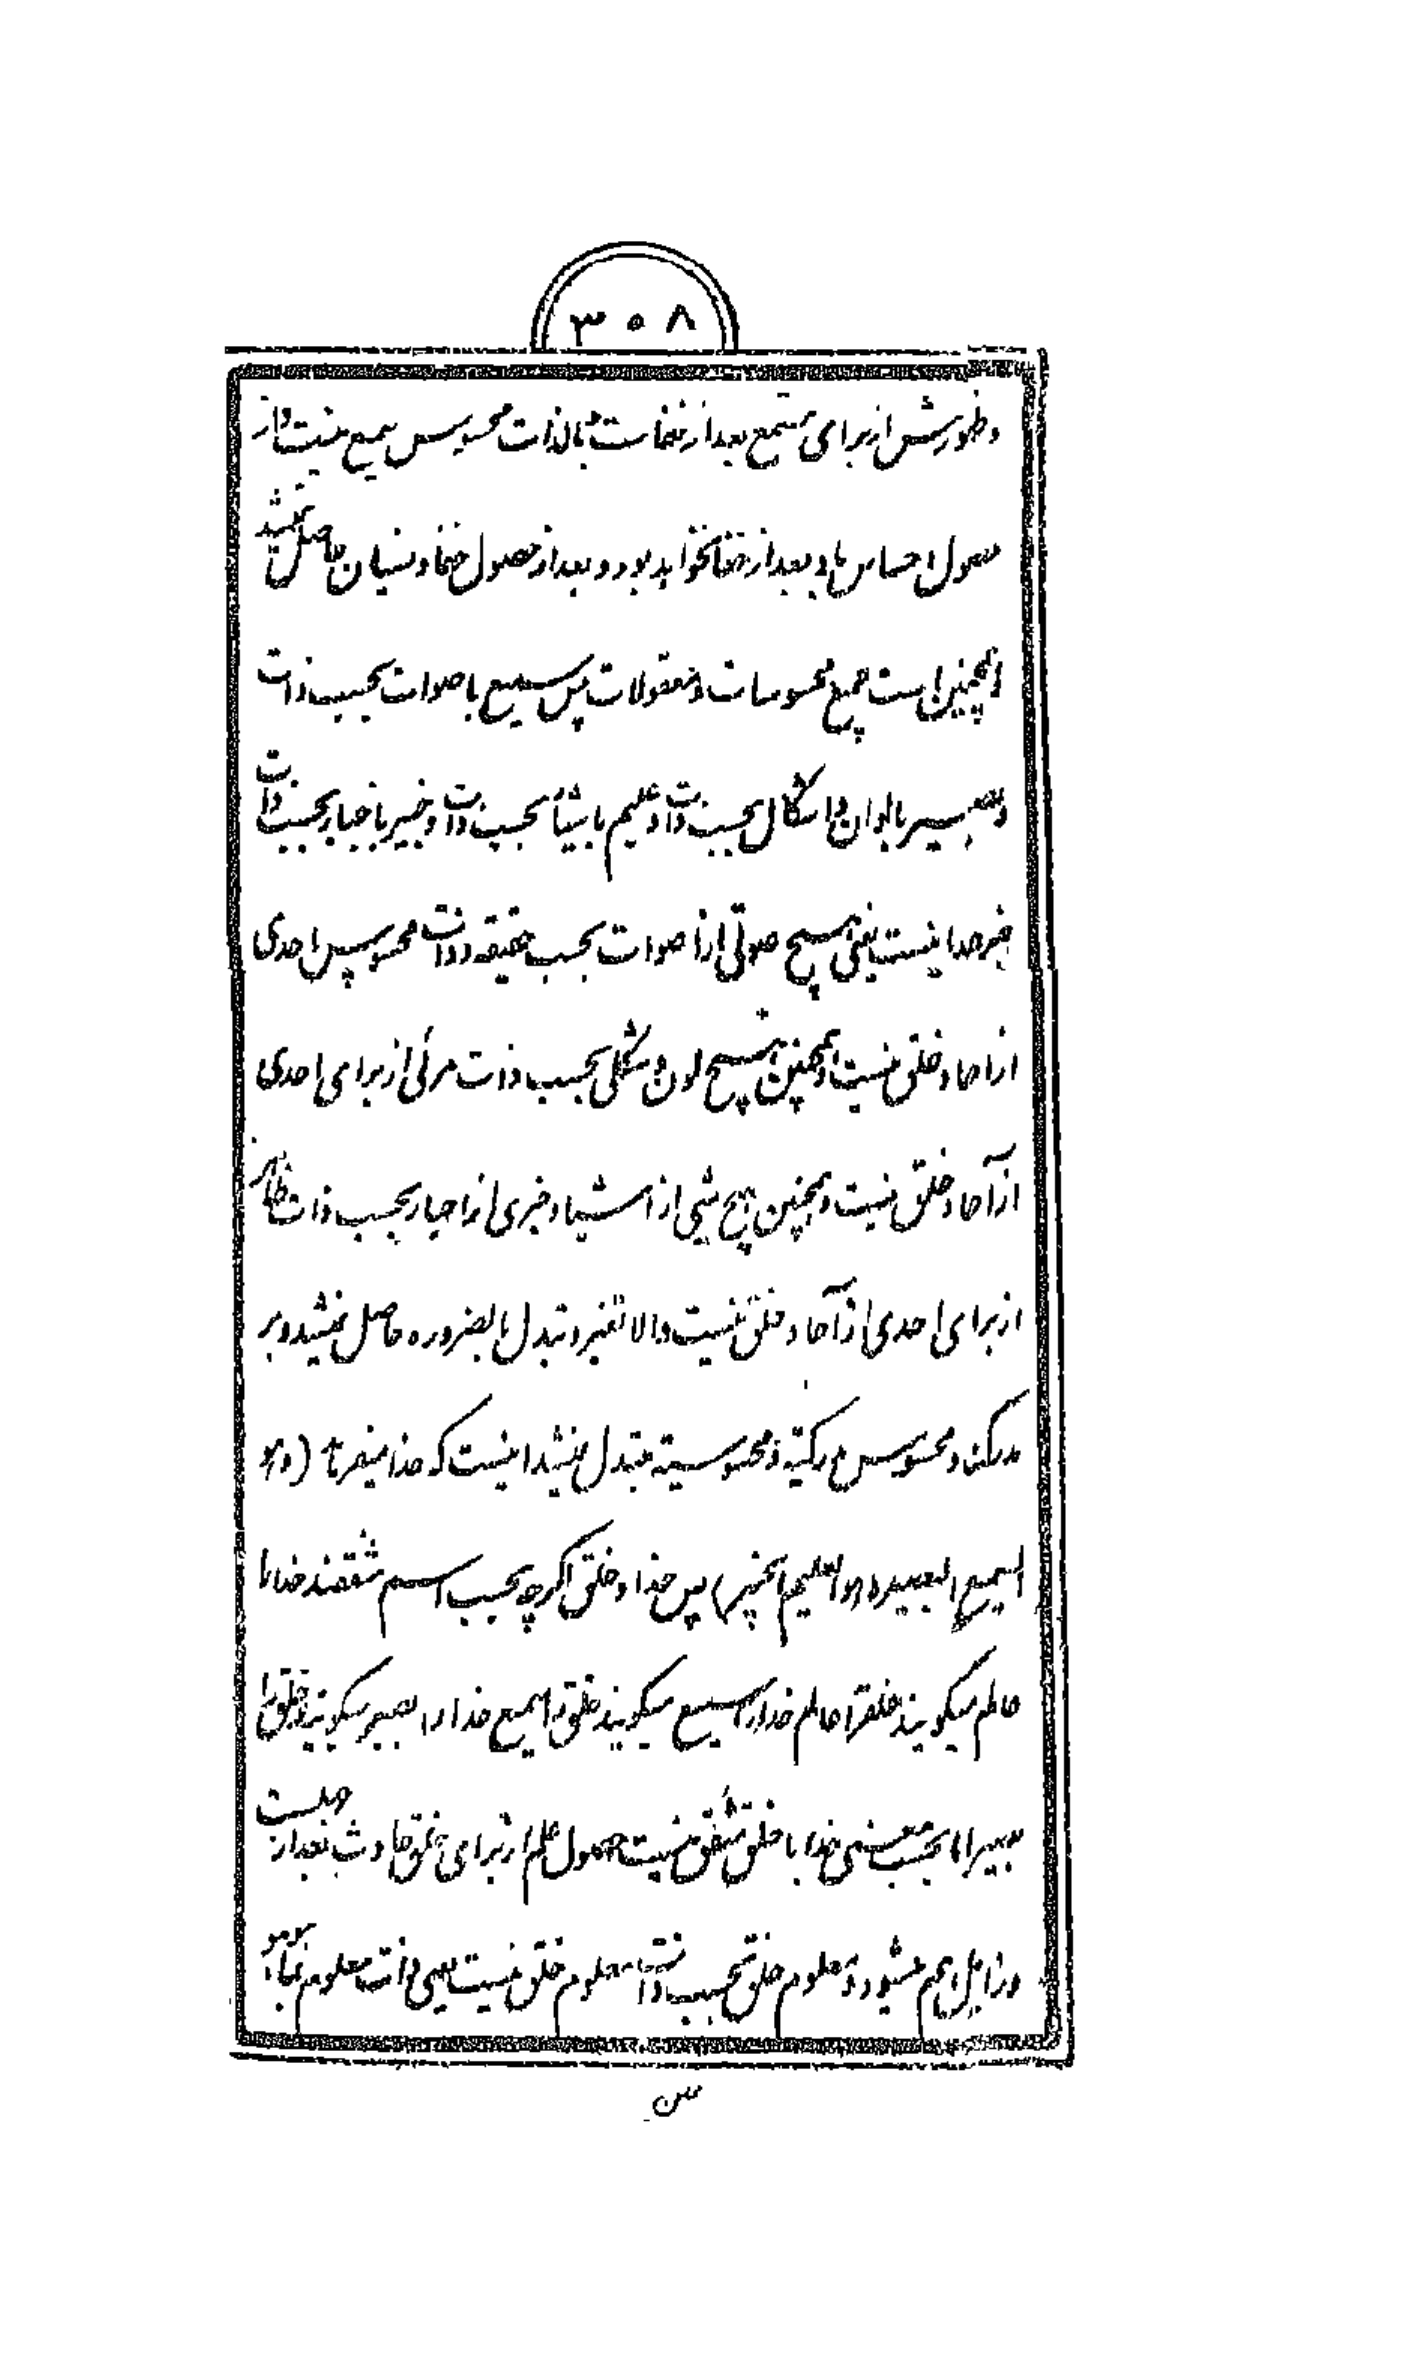 ۳۰۸
و ظهورش از برای مستمع بعد از خفاست و بالذات محسوس سمیع نیست و از
حصول احساس باو بعد از خفا نخواهد بود و بعد از حصول خفا و نسیان حاصل نمیشد
و همچنین است جمیع محسوسات و معقولات پس سمیع باصوات بحسب ذات
و بصیر بالوان و اشکال بحسب ذات و علیم باشیاء بحسب ذات و خبیر باخبار بحسب ذات
غیر خدا نیست یعنی هیچ صوتی از اصوات بحسب حقیقه و ذات محسوس احدی
از احاد خلق نیست و همچنین هیچ لون و شکلی بحسب ذات مرئی از برای احدی
از آحاد خلق نیست و همچنین هیچ شیی از اشیاء و خبری از اخبار بحسب ذات ظاهر
از برای احدی از آحاد خلق نیست والا تغیر و تبدل بالضروره حاصل نمیشد و بر
مدرک و محسوس مدرکیة و محسوسیة متبدل نمیشد اینست که خدا میفرماید (وهو
السمیع البصیر وهو العلیم الخبیر) پس خدا و خلق اگرچه بحسب اسم متفقند خدا را
عالم میگویند خلقرا عالم خدا را سمیع میگویند خلق را سمیع خدا را بصیر میگویند و خلق را
بصیر اما بحسب معنی خدا با خلق متفق نیست حصول علم از برای خلق حادث بعد از جهلست
و زایل هم میشود و معلوم خلق بحسب ذات معلوم خلق نیست یعنی ذات معلوم